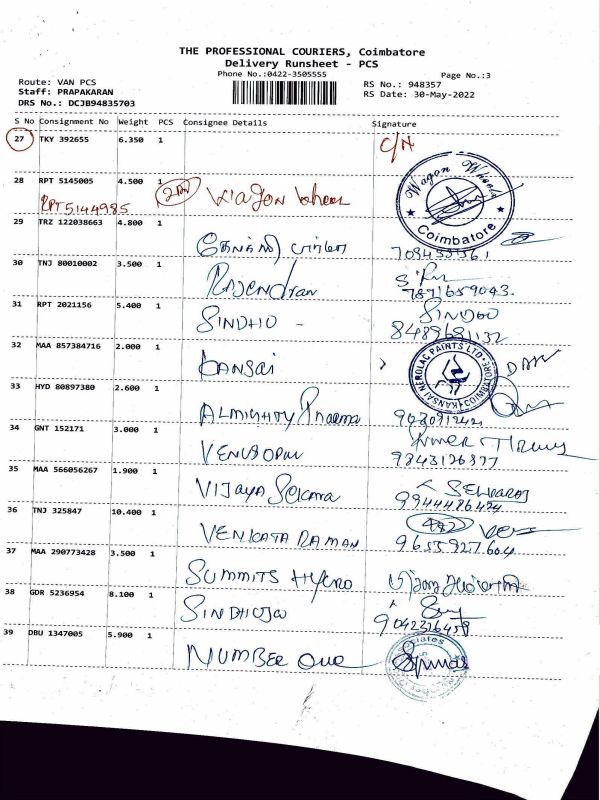 THE PROFESSIONAL COURIERS, Coimbatore
Delivery Runsheet - PCS
Phone No.:0422-3505555
Page No.:3
Route: VAN PCS
RS No.: 948357
Staff: PRAPAKARAN
RS Date: 30-May-2022
DRS No.: DCJB94835703
S No Consignment No Weight PCS Consignee Details Signature
27 TKY 392655 6.350 1 C/N
28 RPT 5145005 4.500 1 Wagon Wheels
RPT 5144985
Wagon Wheels
Coimbatore
29 TRZ 122038663 4.800 1
30 TNJ 80010002 3.500 1 Rajendran
7871659043
31 RPT 2021156 5.400 1 SINDHU -
8489681132
32 MAA 857384716 2.000 1 Kansai
KANSAI NEROLAC PAINTS LTD
COIMBATORE
33 HYD 80897380 2.600 1 ALMIGHTY Pharma
34 GNT 152171 3.000 1 VENUGOPAL
9843126377
35 MAA 566056267 1.900 1 VIJAYA
9944426424
36 TNJ 325847 10.400 1 VENKATA RAMAN
9655927604
37 MAA 290773428 3.500 1 SUMMITS HYGRO
38 GDR 5236954 8.100 1 SINDHUJA
9042316458
39 DBU 1347005 5.900 1 NUMBER One